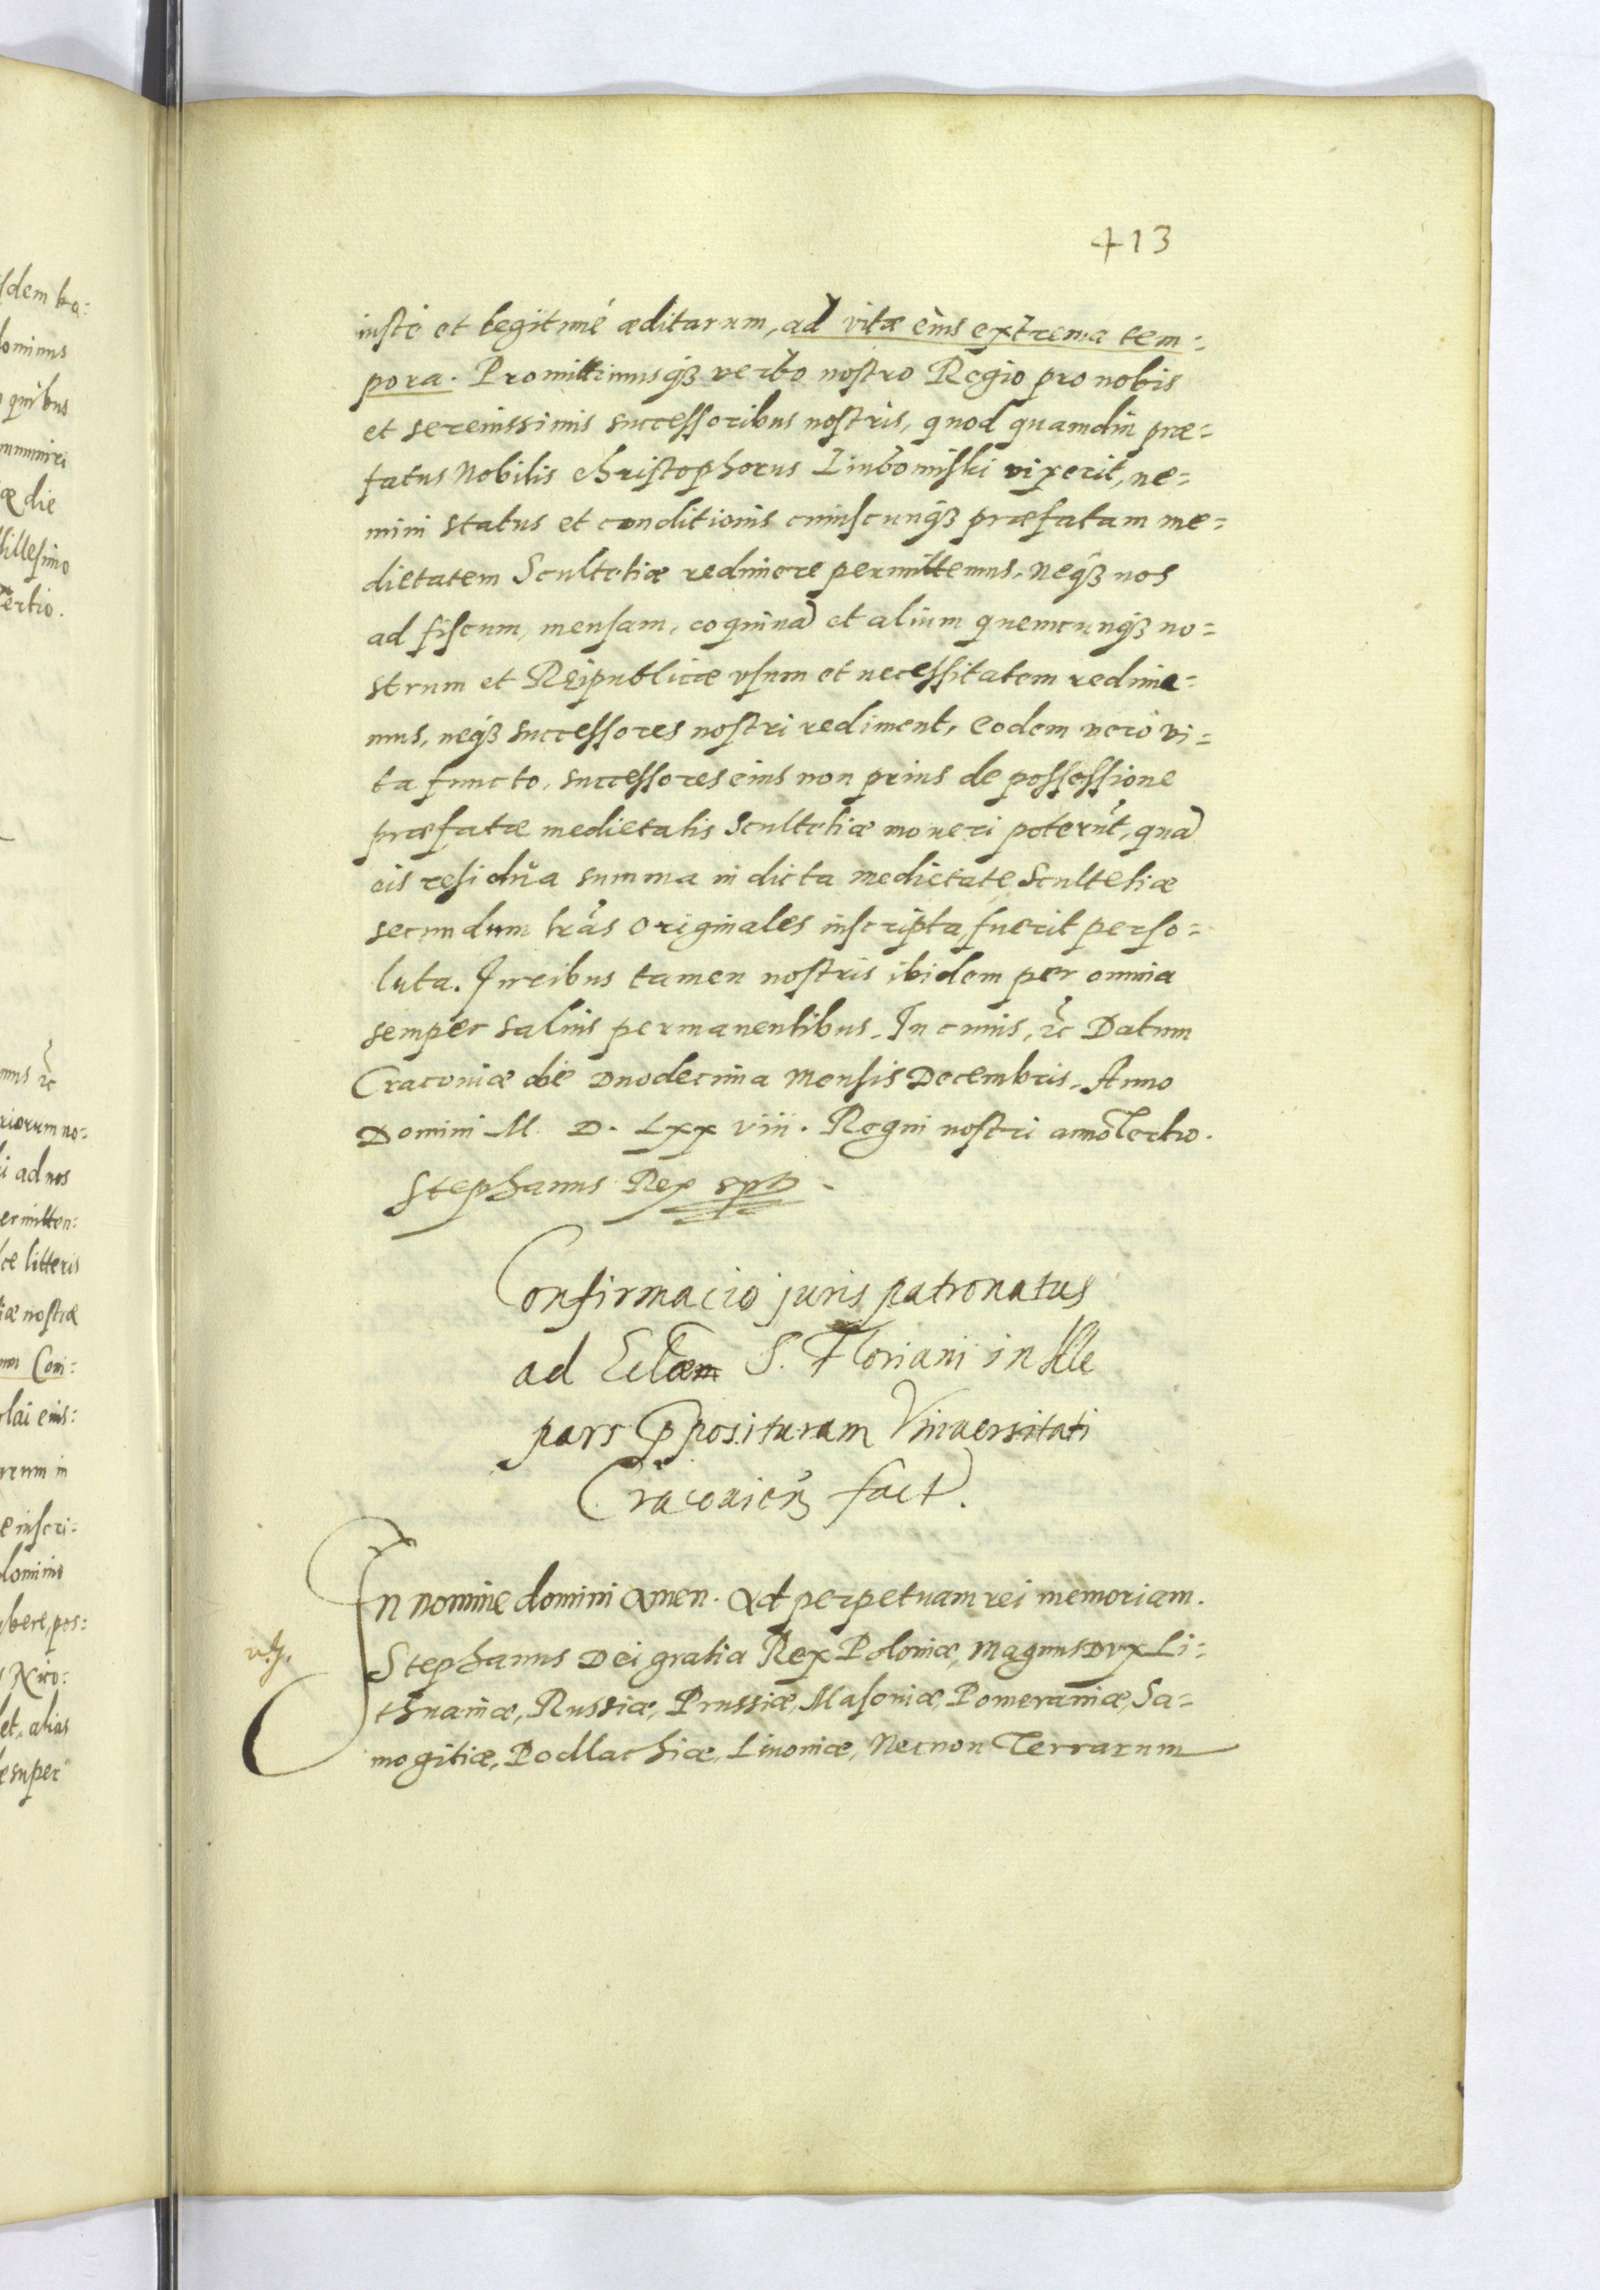 413
iustè et legitimé æditarum, ad vitæ eius extrema tem=
pora. Promittimusq3 verbo nostro Regio pro nobis
et serenissimis successoribus nostris, quod quamdiu præ=
fatus Nobilis Christophorus Liubomiski vixerit, ne=
mini status et conditionis cuiuscunq3 præfatam me=
dietatem Scultetiæ redimere permittemus. Neq3 nos
ad fiscum, mensam, coquinã et alium quemcunq3 no=
strum et Reipublicæ vsum et necessitatem redime=
mus, neq3 successores nostri rediment, eodem vero vi=
ta functo, successores eius non prius de possessione
præfatæ medietatis Scultetiæ moueri poterũt, quã
eis residua summa in dicta medietate Scultetiæ
secundum lrãs originales inscripta fuerit perso=
luta. Juribus tamen nostris ibidem per omnia
semper saluis permanentibus. In cuius, &c Datum
Cracouiæ die Duodecima Mensis Decembris. Anno
Domini M. D. Lxx viii. Regni nostri anno Tertio.
Stephanus Rex spt
Confirmacio juris patronatus
ad S. Floriani in
pars ppposituram Vniuersitati
Cracouien3 fact.
In nomine domini amen. Ad perpetuam rei memoriam.
Stephanus Dei gratia Rex Poloniæ, Magnus Dvx Li=
thuaniæ, Russiæ, Prussiæ, Masouiæ, Pomeraniæ, Sa=
mogitiæ, Podlachiæ, Liuoniæ, Necnon Terrarum